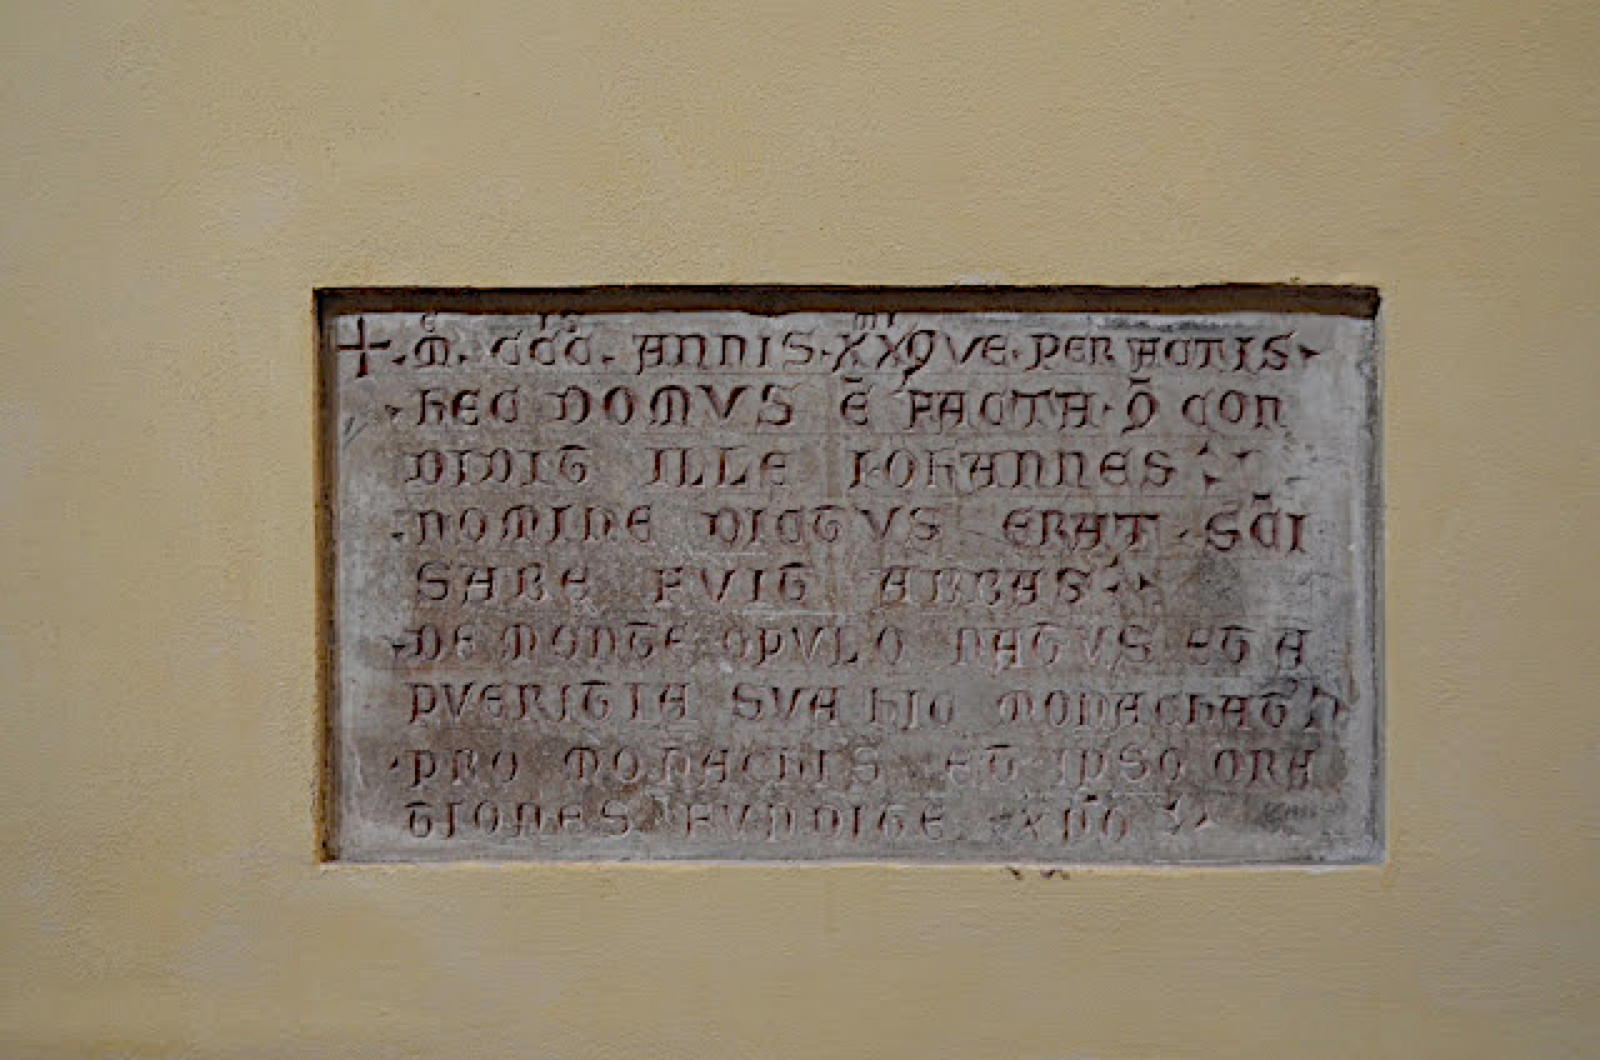 + · M̊ · CCC · ANNIS · XXQVE · PERACTIS ·
· HEC DOMVS Ē FACTA · Q̄ CON
DIDIT ILLE IOHANNES ·
· NOMINE DICTVS ERAT · SC̄I
SABE FVIT ABBAS ·
· DE MONTE OPVLO NATVS ET A
PVERITIA SVA HIC MONACHAT
· PRO MONACHIS ET IPSO ORA
TIONES FVNDITE XP̄O